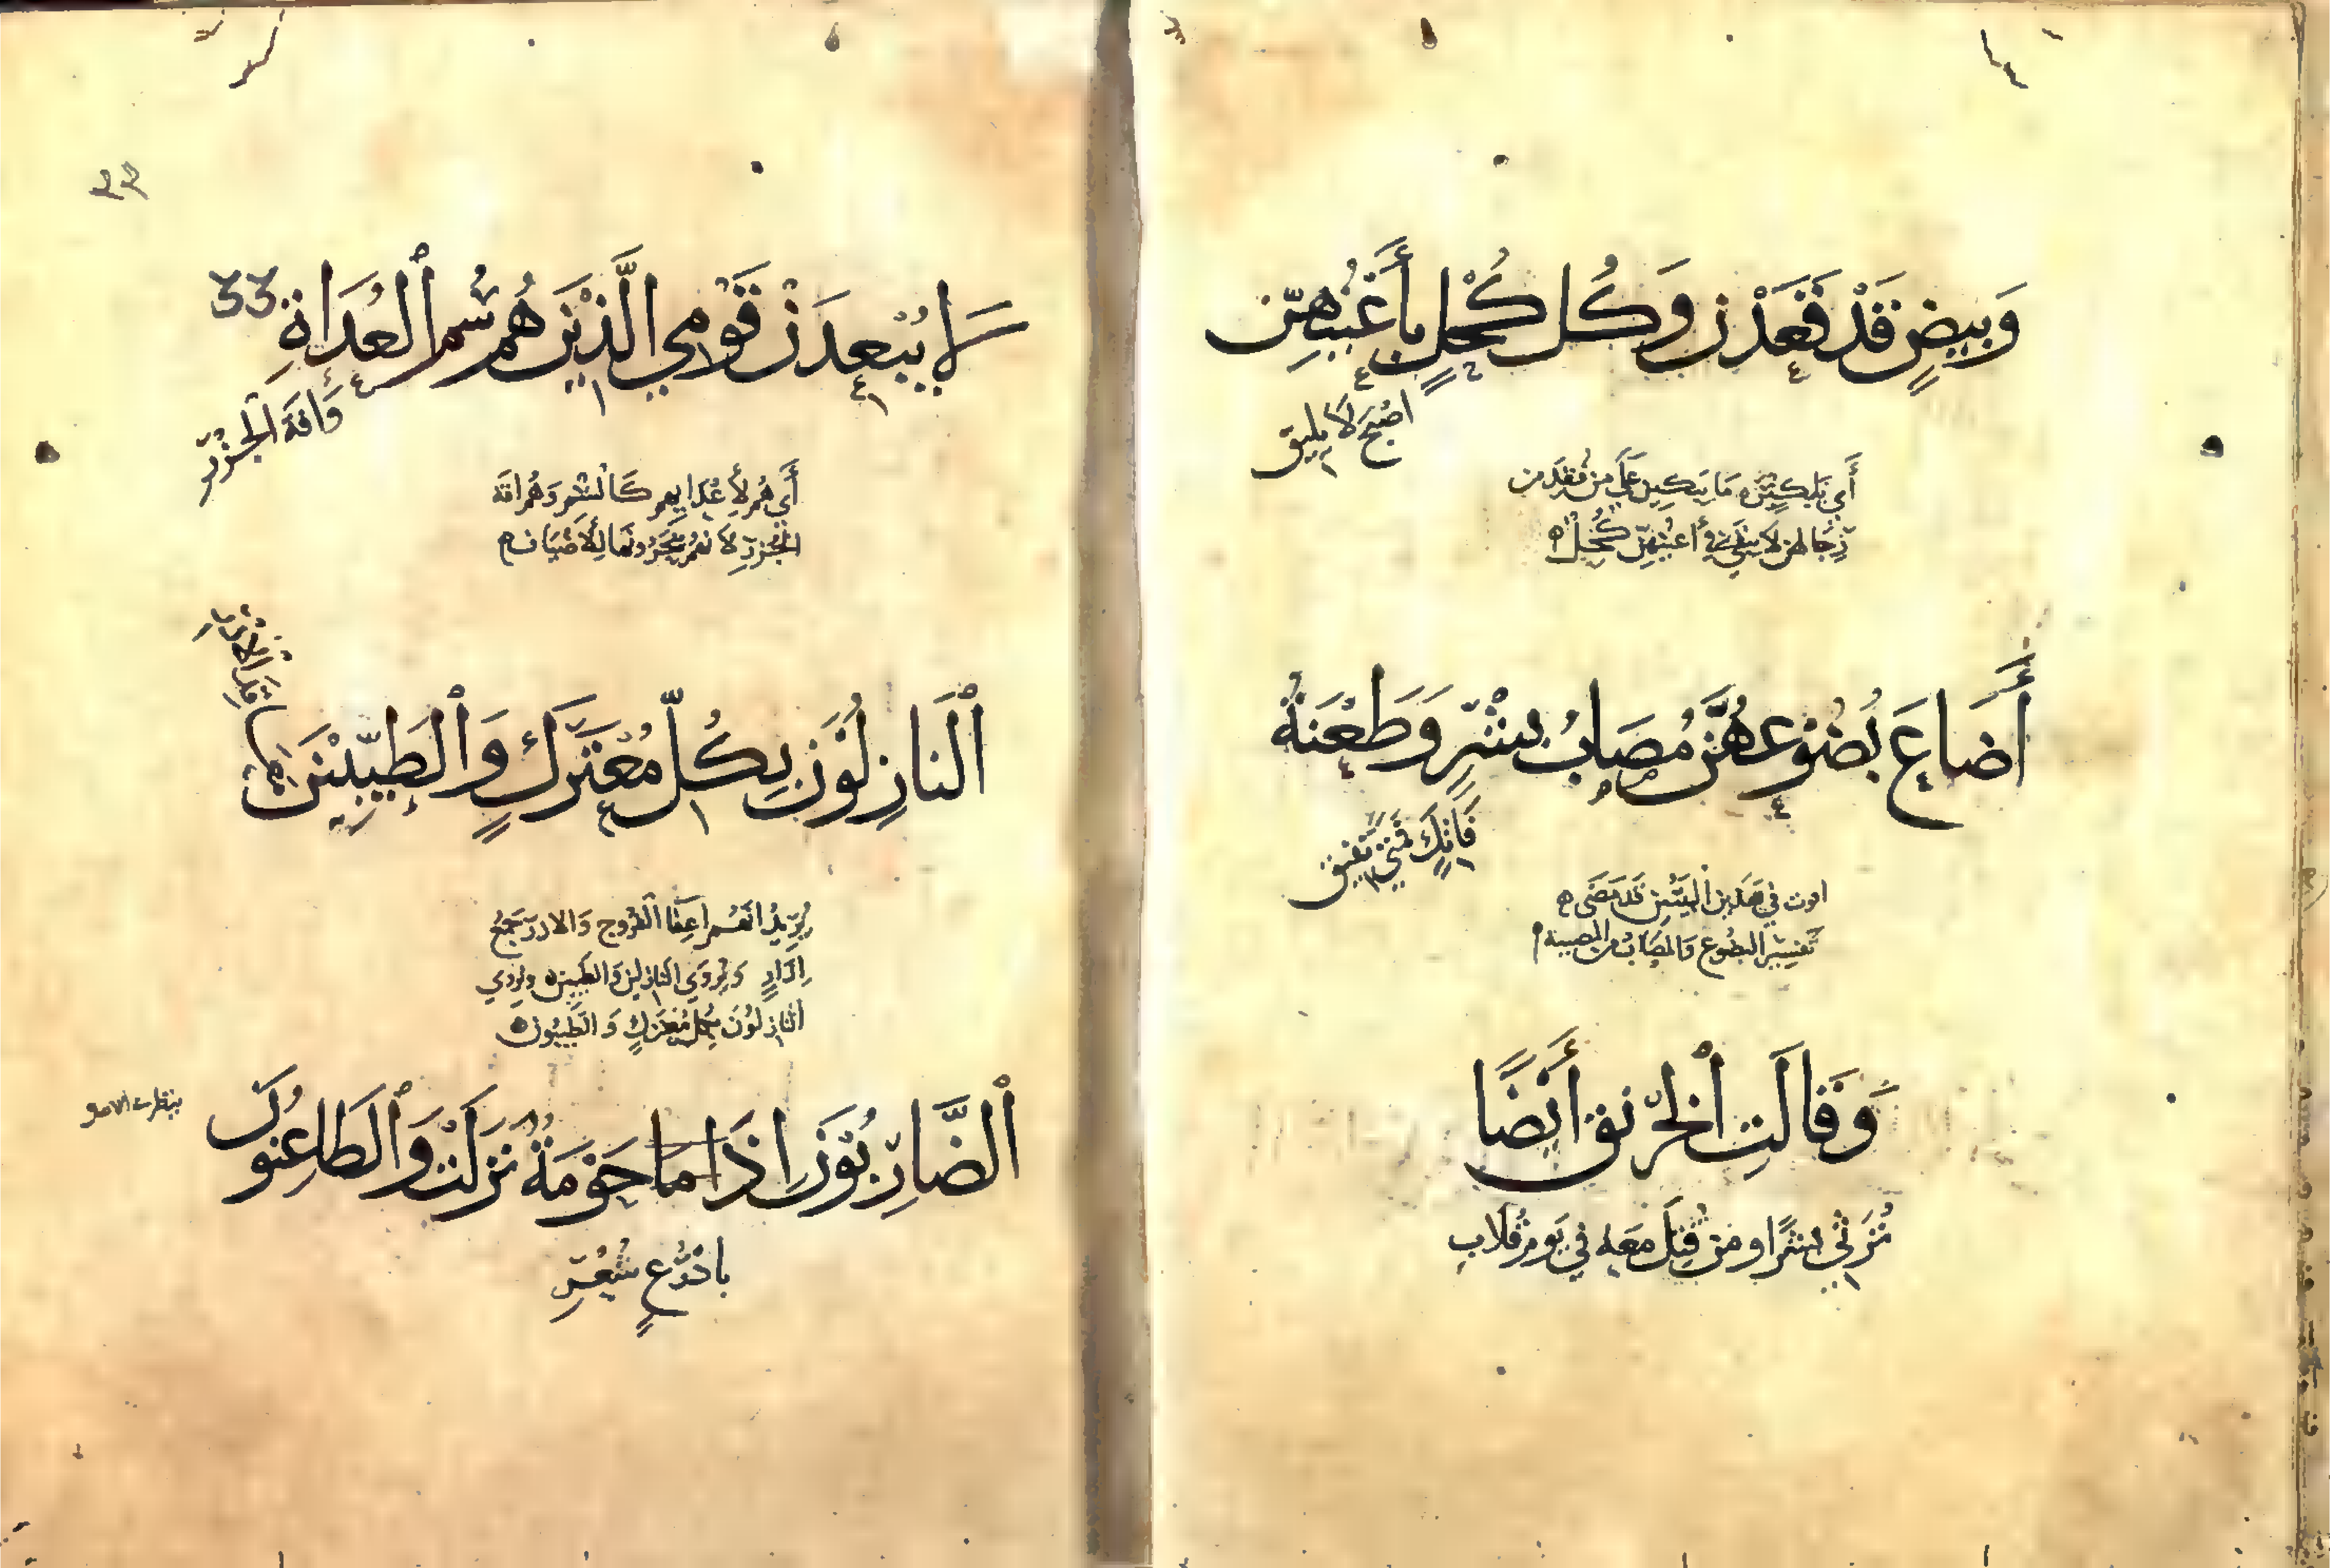 وَبِيضٍ قَدْ قَعَدْنَ وَكُلُّ كُحْلٍ بِأَعْيُنِهِنَّ
أَصْبَحَ لَا يَلِيقُ
أَي يَبْكِينَ مَا يَبْكِينَ عَلَى مَنْ فُقِدَ مِن
رِجَالِهِنَّ لَا يَبْقَى فِي أَعْيُنِهِنَّ كُحْلٌ
أَضَاعَ بُضُوعَهُنَّ مُصَابُ بِشْرٍ وَطَعْنَةُ
فَاتِكٍ فَمَتَى تُفِيقُ
في هَذَيْنِ الْبَيْتَيْنِ قَدْ مَضَى
تَفْسِيرُ الْبُضُوعِ وَالْمُصَابُ مِنَ الْمُصِيبَةِ
وَقَالَتِ الْخِرْنِقُ أَيْضًا
تَرْثِي بِشْرًا وَمَنْ قُتِلَ مَعَهُ فِي يَوْمِ قُلَابٍ
لَا يَبْعَدَنْ قَوْمِي الَّذِينَ هُمُ سُمُّ الْعُدَاةِ
33
وَآفَةُ الْجُزْرِ
أَي هُمْ لِأَعْدَائِهِمْ كَالسُّمِّ وَهُمْ آفَةُ
الْجُزْرِ لِأَنَّهُمْ يَنْحَرُونَهَا لِلْأَضْيَافِ
النَّازِلُونَ بِكُلِّ مُعْتَرَكٍ وَالطَّيِّبِينَ
مَعَاقِدَ الْأُزْرِ
يُرِيدُ أَنَّهُمْ أَعِفَّاءُ الْفُرُوجِ وَالْأُزُرُ جَمْعُ
إِزَارٍ وَيُرْوَى النَّازِلِينَ وَالطَّيِّبِينَ وَيُرْوَى
النَّازِلُونَ بِكُلِّ مُعْتَرَكٍ وَالطَّيِّبُونَ
الضَّارِبُونَ إِذَا مَا حَوْمَةٌ نَزَلَتْ وَالطَّاعِنُونَ
بِأَذْرُعٍ شُعْرِ